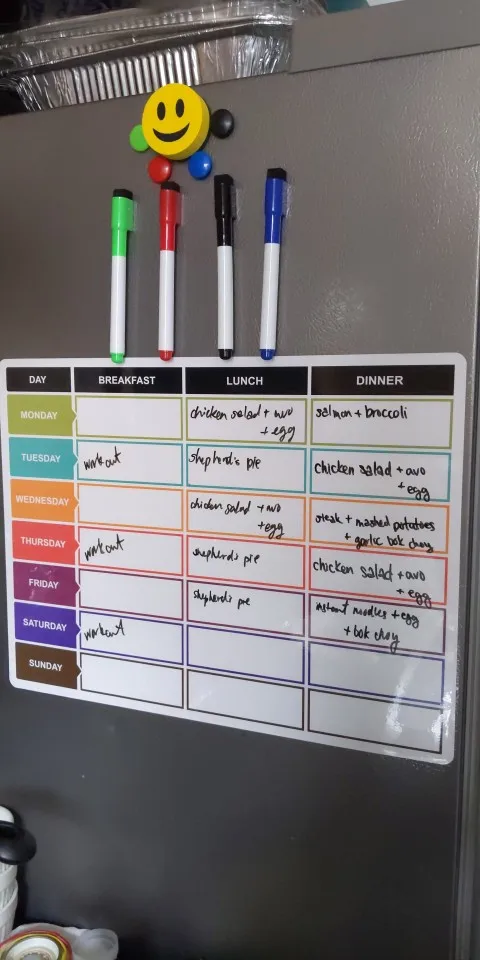 DAY BREAKFAST LUNCH DINNER
MONDAY chicken salad + avo salmon + broccoli
+ egg
TUESDAY workout shepherd's pie chicken salad + avo
+ egg
WEDNESDAY chicken salad + avo steak + mashed potatoes
+ egg + garlic bok choy
THURSDAY workout shepherd's pie chicken salad + avo
+ egg
FRIDAY shepherd's pie instant noodles + egg
+ bok choy
SATURDAY workout
SUNDAY